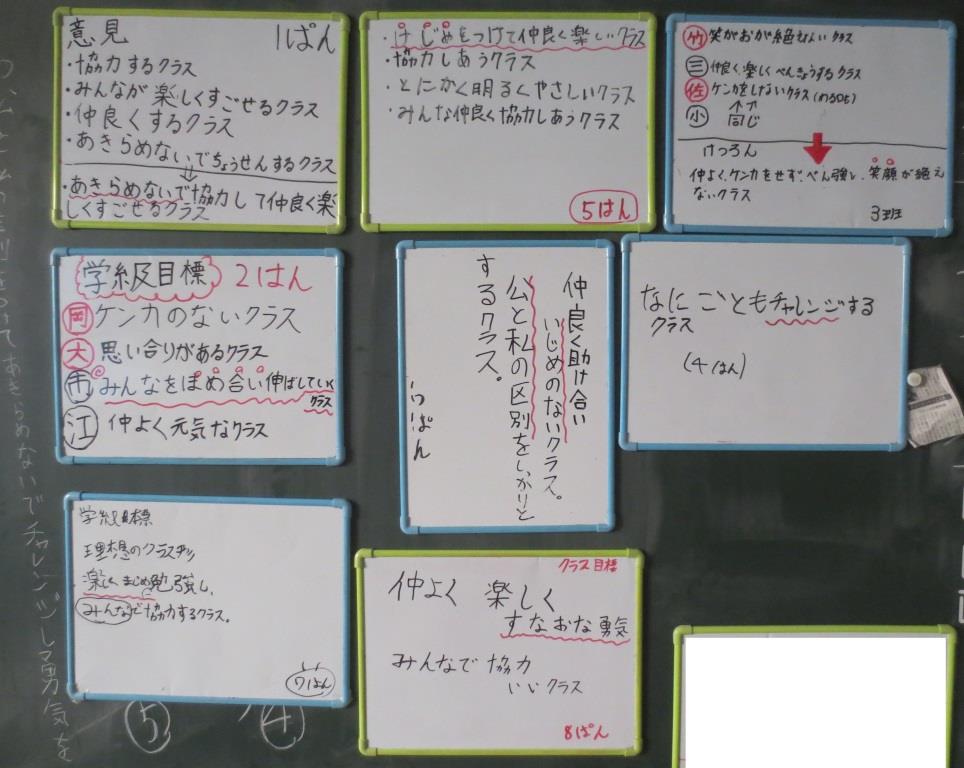 意見 1ぱん
・協力するクラス
・みんなが楽しくすごせるクラス
・仲良くするクラス
・あきらめないでちょうせんするクラス
・あきらめないで協力して仲良く楽
しくすごせるクラス
・けじめをつけて仲良く楽しいクラス
・協力しあうクラス
・とにかく明るくやさしいクラス
・みんな仲良く協力しあうクラス
5はん
竹 笑がおが絶えないクラス
三 仲良く、楽しくべんきょうするクラス
佐 ケンカをしないクラス
小 同じ
けつろん
仲よく、ケンカをせず、べん強し、笑顔が絶え
ないクラス
3班
学級目標 2はん
岡 ケンカのないクラス
大 思い合りがあるクラス
市 みんなをほめ合い伸ばしていく
クラス
江 仲よく元気なクラス
仲良く助け合い
いじめのないクラス。
公と私の区別をしっかりと
するクラス。
なにごともチャレンジする
クラス
(4はん)
学級目標
理想のクラス
楽しくまじめ勉強し、
みんなで協力するクラス。
7はん
クラス目標
仲よく 楽しく
すなおな勇気
みんなで協力
いいクラス
8ぱん
てあきらめないでチャレンジして勇気を
⑤
④